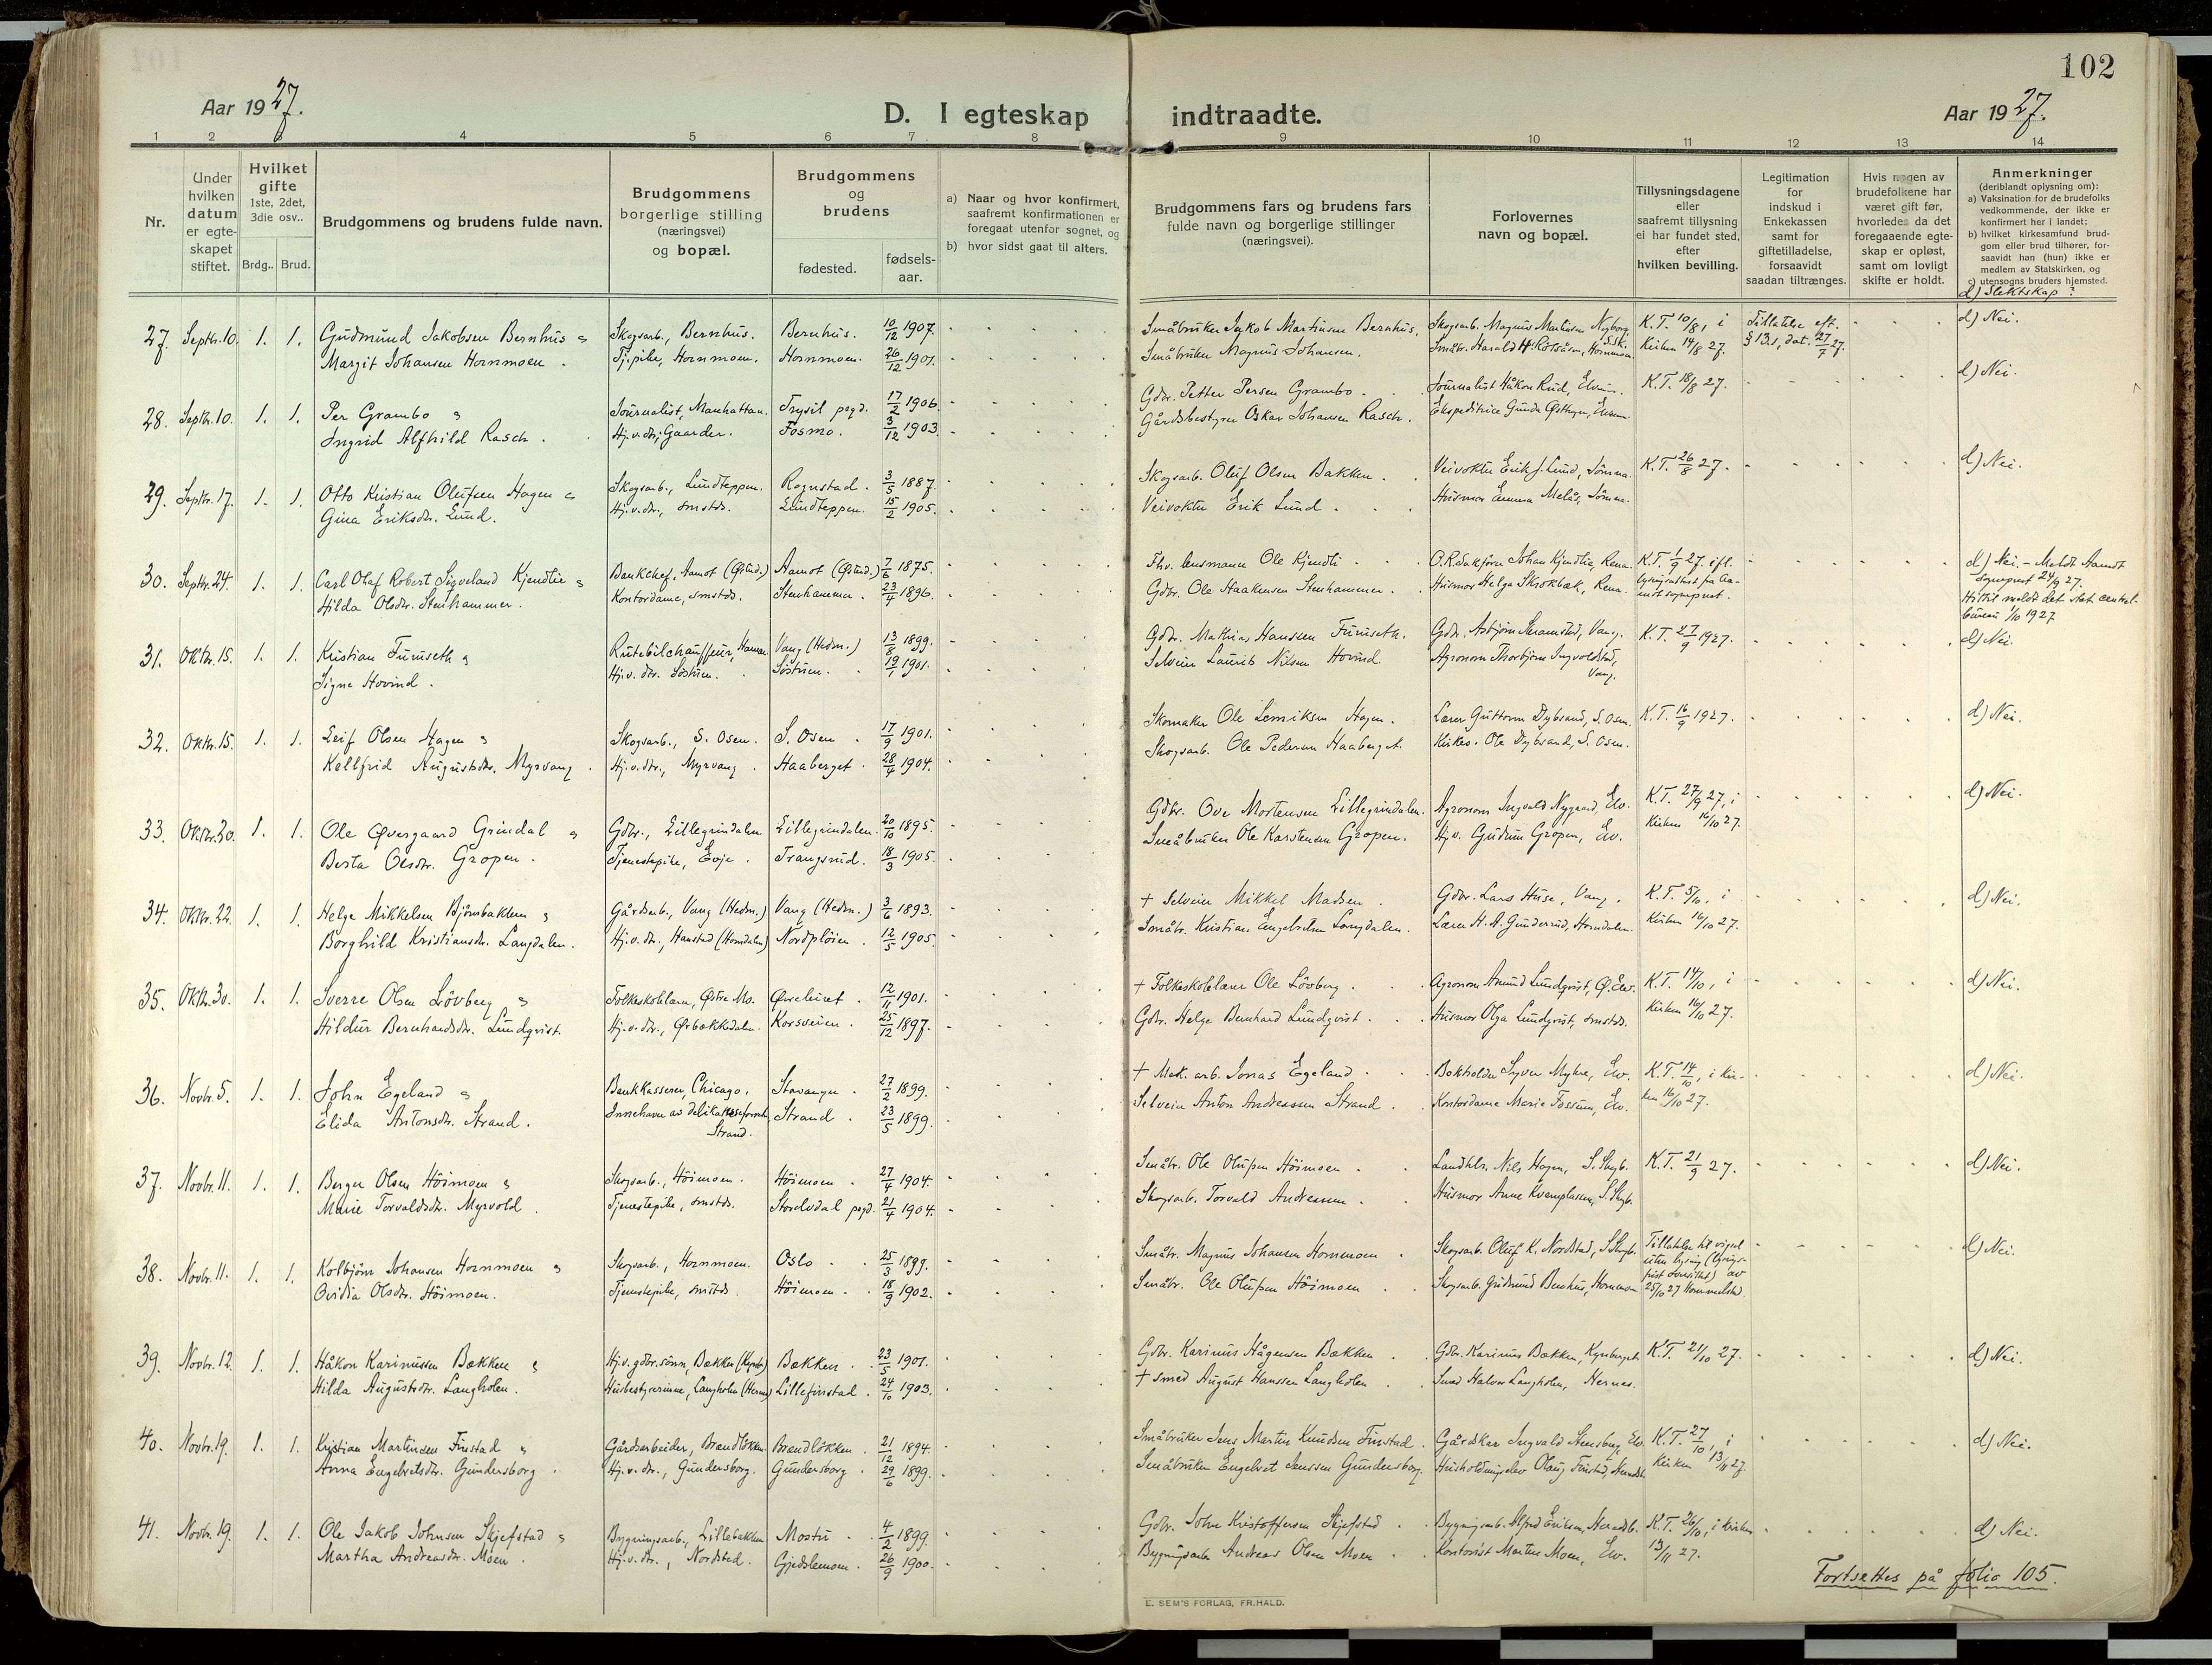 102
Aar 1927.
D. I egteskap indtraadte.
Aar 1927.
1 2 3 4 5 6 7 8 9 10 11 12 13 14
Nr.
Under hvilken datum er egteskapet stiftet.
Hvilket gifte 1ste, 2det, 3die osv..
Brdg.. Brud.
Brudgommens og brudens fulde navn.
Brudgommens borgerlige stilling (næringsvei) og bopæl.
Brudgommens og brudens
fødested.
fødsels-aar.
a) Naar og hvor konfirmert, saafremt konfirmationen er foregaat utenfor sognet, og
b) hvor sidst gaat til alters.
Brudgommens fars og brudens fars fulde navn og borgerlige stillinger (næringsvei).
Forlovernes navn og bopæl.
Tillysningsdagene eller saafremt tillysning ei har fundet sted, efter hvilken bevilling.
Legitimation for indskud i Enkekassen samt for giftetilladelse, forsaavidt saadan tiltrænges.
Hvis nogen av brudefolkene har været gift før, hvorledes da det foregaaende egteskap er opløst, samt om lovligt skifte er holdt.
Anmerkninger (deriblandt oplysning om):
a) Vaksination for de brudefolks vedkommende, der ikke er konfirmert her i landet;
b) hvilket kirkesamfund brudgom eller brud tilhører, forsaavidt han (hun) ikke er medlem av Statskirken, og
c) utensogns bruders hjemsted.
d) Slektskap?
27. Septbr. 10. 1. 1. Gudmund Jakobsen Bernhus Skogsarb., Bernhus. Bernhus. 10/12 1907. Småbruker Jakob Martinsen Bernhus. Skogsarb. Magnus Martinsen Nyborg, S.Sk. K.T. 10/8, i Tillatelse eft. d) Nei.
Margit Johansen Hornmoen. Tj.pike, Hornmoen. Hornmoen. 26/12 1901. Småbruker Magnus Johansen. Småbr. Harald Hornmoen Kirken 14/8 27. § 13.1, dat. 27/7 27.
28. Septbr. 10. 1. 1. Per Grambo Journalist, Manhattan. Trysil pegd. 17/2 1906. Gdbr. Petter Persen Grambo. Journalist Håkon Rud, Elverum. K.T. 18/8 27. d) Nei.
Ingrid Alfhild Rasch. Hj.v.dtr., Gaarder. Fosmo. 3/12 1903. Gårdsbestyrer Oskar Johansen Rasch. Ekspeditrice Gunda
29. Septbr. 17. 1. 1. Otto Kristian Olufsen Hagen Skogsarb., Lundteppen. Rognstad. 3/5 1887. Skogsarb. Oluf Olsen Bakken. Veivokter Erik J. Lund, Sömna. K.T. 26/8 27. d) Nei.
Gina Eriksdtr. Lund. Hj.v.dtr., smstds. Lundteppen. 15/2 1905. Veivokter Erik Lund. Husmor Emma Melås, Sömna.
30. Septbr. 24. 1. 1. Carl Olaf Robert Sigveland Kjendlie Bankchef, Aamot (Østerd.) Aamot (Østerd.) 7/6 1875. Fhv. lensmann Ole Kjendli O.R.sakförer Johan Kjendlie, Rena. K.T. 1/9 27. d) Nei. – Meldt Aamot
Hilda Olsdtr. Stenhammer. Kontordame, smstds. Stenhammer. 23/4 1896. Gdbr. Ole Haakensen Stenhammer. Husmor Helga Skrokbæk, Rena. sogneprest 24/9 27.
Hittil meldt det stat. central-
bureau 1/10 1927
31. Oktbr. 15. 1. 1. Kristian Furuseth Rutebilchauffeur, Hamar. Vang (Hedm.) 13/8 1899. Gdbr. Mathias Hanssen Furuseth. Gdbr. Asbjørn Vang. K.T. 27/9 1927. d) Nei.
Signe Hovind. Hj.v.dtr. Söstuen. Söstuen. 19/1 1901. Selveier Laurits Nilsen Hovind. Agronom Thorbjørn Ingvoldstad, Vang.
32. Oktbr. 15. 1. 1. Leif Olsen Hagen Skogsarb., S. Osen. S. Osen 17/9 1901. Skomaker Ole Hagen. Lærer Guttorm Dybsand, S. Osen. K.T. 16/9 1927. d) Nei.
Kellfrid Augustsdtr. Myrvang. Hj.v.dtr., Myrvang. Haaberget. 28/4 1904. Skogsarb. Ole Pedersen Haaberget. Kirkes. Ole Dybsand, S. Osen.
33. Oktbr. 20. 1. 1. Ole Øvergaard Grindal Gdbr., Lillegrindalen. Lillegrindalen. 20/10 1895. Gdbr. Ove Mortensen Lillegrindalen. Agronom Ingvald Nygaard, Elv. K.T. 27/9 27, i d) Nei.
Berta Olsdtr. Gropen. Tjenestepike, Evje. Trangsrud. 18/3 1905. Småbruker Ole Karstensen Gropen. Hj.v. Gudrun Gropen, Elv. Kirken 16/10 27.
34. Oktbr. 22. 1. 1. Helge Mikkelsen Bjørnbakken Gårdsarb., Vang (Hedm.) Vang (Hedm.) 3/6 1893. + Selveier Mikkel Madsen. Gdbr. Lars Huse, Vang. K.T. 5/10, i d) Nei.
Borghild Kristiansdtr. Langdalen. Hj.v.dtr., Hanstad (Horndalen) Nordpløien. 12/5 1905. Småbr. Kristian Engebretsen Langdalen. Lærer H. A. Gunderud, Horndalen. Kirken 16/10 27.
35. Oktbr. 30. 1. 1. Sverre Olsen Lövberg Folkeskolelærer, Østre Mo. Øvreleiret. 12/11 1901. + Folkeskolelærer Ole Lövberg. Agronom Amund Lundqvist, Ø. Elv. K.T. 14/10, i d) Nei.
Hildur Bernhardsdtr. Lundqvist. Hj.v.dtr., Ørbækkedalen. Korsveien. 25/12 1897. Gdbr. Helge Bernhard Lundqvist. Husmor Olga Lundqvist, smstds. Kirken 16/10 27.
36. Novbr. 5. 1. 1. John Egeland Bankkasserer, Chicago. Stavanger 27/2 1899. + Mek. arb. Jonas Egeland. Bokholder Syver Myhre, Elv. K.T. 14/10, i kir- d) Nei.
Elida Antonsdtr. Strand. Innehaver av delikatesseforretn. Strand. Strand. 23/5 1899. Selveier Anton Andreassen Strand. Kontordame Marie Fossum, Elv. ken 16/10 27.
37. Novbr. 11. 1. 1. Berger Olsen Höimoen Skogsarb., Höimoen. Höimoen. 27/4 1904. Småbr. Ole Olufsen Höimoen. Landhdlr. Nils Hagen, S. Skgb. K.T. 21/9 27. d) Nei.
Marie Torvaldsdtr. Myrvold. Tjenestepike, smstds. Storelvdal pegd. 21/4 1904. Skogsarb. Torvald Andreassen. Husmor Anne S. Skgb.
38. Novbr. 11. 1. 1. Kolbjörn Johansen Hornmoen Skogsarb., Hornmoen. Oslo 25/3 1899. Småbr. Magnus Johansen Hornmoen. Skogsarb. Oluf K. Nordstad, S. Skgb. Tillatelse til vigsel d) Nei.
Ovidia Olsdtr. Höimoen. Tjenestepike, smstds. Höimoen. 18/9 1902. Småbr. Ole Olufsen Höimoen Skogsarb. Gudmund Bernhus, Hornmoen uten lysning (lysings-
frist oversittet) av
25/10 27 Hommelstad.
39. Novbr. 12. 1. 1. Håkon Karinussen Bækken Hj.v. gdbr.sönn, Bækken Bækken. 23/5 1901. Gdbr. Karinus Hågensen Bækken Gdbr. Karinus Bækken, Kynberget. K.T. 21/10 27. d) Nei.
Hilda Augustsdtr. Langholen. Husbestyrerinne, Langholen (Hernes) Lillefinstad. 24/10 1903. + Smed August Hanssen Langholen Smed Halvor Langholen, Hernes.
40. Novbr. 19. 1. 1. Kristian Martinsen Finstad Gårdsarbeider, Brændløkken. Brændløkken. 21/12 1894. Småbruker Jens Martin Knudsen Finstad. Gårdsker Ingvald Stensberg, Elv. K.T. 27/10, i d) Nei.
Anna Engebretsdtr. Gundersborg. Hj.v.dtr., Gundersborg. Gundersborg. 29/6 1899. Småbruker Engebret Jenssen Gundersborg. Husholdningselev Olaug Finstad, Kirken 13/11 27.
41. Novbr. 19. 1. 1. Ole Jakob Johnsen Skjefstad Bygningsarb., Lillebakken Mostu 4/2 1899. Gdbr. John Kristoffersen Skjefstad. Bygningsarb. Alfred Eriksen, K.T. 26/10, i kirken d) Nei.
Martha Andreasdtr. Moen. Hj.v.dtr., Nordsted. Gjedslemoen. 26/9 1900. Bygningsarb. Andreas Olsen Moen Kontorist Martin Moen, Elv. 13/11 27.
Fortsettes på folio 105.
E. SEM'S FORLAG, FR.HALD.